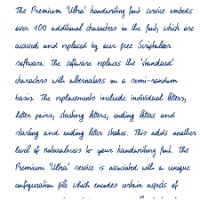 The Premium 'Ultra' handwriting font service embeds
over 100 additional characters in the font, which are
accessed and replaced by our free Scriptalizer
software. The software replaces the 'standard'
characters with alternatives on a semi-random
basis. The replacements include individual letters,
letter pairs, starting letters, ending letters and
starting and ending letter strokes. This adds another
level of naturalness to your handwriting font. The
Premium 'Ultra' service is associated with a unique
configuration file which encodes certain aspects of